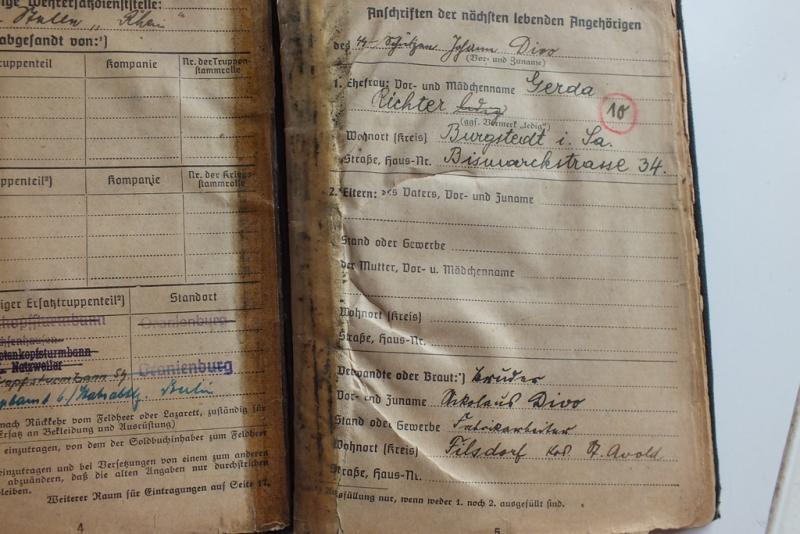 Wehrersatzdienststelle:
abgesandt von:¹)
Truppenteil Kompanie Nr. der Truppen-
stammrolle
ppenteil²) Kompanie Nr. der Kriegs-
stammrolle
iger Ersatztruppenteil²) Standort
kopfsturmbann Oranienburg
Totenkopfsturmbann
Natzweiler Oranienburg
Berlin
nach Rückkehr vom Feldheer oder Lazarett, zuständig für
Ersatz an Bekleidung und Ausrüstung)
einzutragen, von dem der Soldbuchinhaber zum Feldheer
einzutragen und bei Versetzungen von einem zum anderen
abzuändern, daß die alten Angaben nur durchstrichen
bleiben.
Weiterer Raum für Eintragungen auf Seite 17.
4
Anschriften der nächsten lebenden Angehörigen
des ᛋᛋ- Schützen Johann Divo
(Vor- und Zuname)
1. Ehefrau: Vor- und Mädchenname Gerda
Richter ledig 10
(ggf. Vermerk „ledig")
Wohnort (Kreis) Burgstedt i. Sa.
Straße, Haus-Nr. Bismarckstrasse 34.
2. Eltern: des Vaters, Vor- und Zuname
Stand oder Gewerbe
der Mutter, Vor- u. Mädchenname
Wohnort (Kreis)
Straße, Haus-Nr.
Verwandte oder Braut:*) Bruder
Vor- und Zuname Nikolaus Divo
Stand oder Gewerbe Fabrikarbeiter
Wohnort (Kreis) Filsdorf Kr. St. Avold
Straße, Haus-Nr.
Ausfüllung nur, wenn weder 1. noch 2. ausgefüllt sind.
5